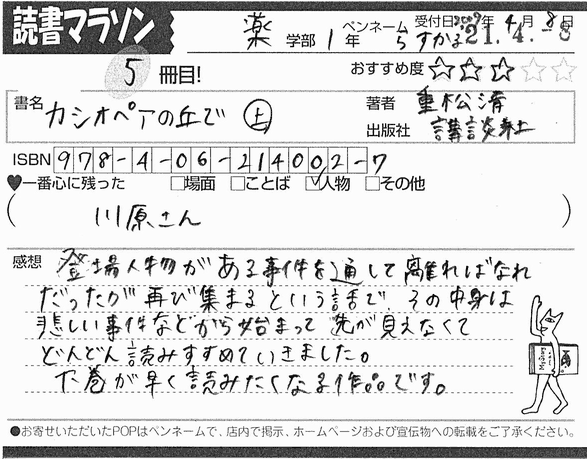 読書マラソン
薬 学部 1 年 ペンネーム らすかる 受付日2009年 4月 8日
21. 4. -8
5 冊目! おすすめ度 ★★★☆☆
書名 カシオペアの丘で 上 著者 重松清
出版社 講談社
ISBN 978-4-06-214002-7
♥一番心に残った □場面 □ことば ☑人物 □その他
( 川原さん )
感想 登場人物がある事件を通して離ればなれ
だったが再び集まるという話で、その中身は
悲しい事件などから始まって先が見えなくて
どんどん読みすすめていきました。
下巻が早く読みたくなる作品です。
●お寄せいただいたPOPはペンネームで、店内で掲示、ホームページおよび宣伝物への転載をご了承ください。